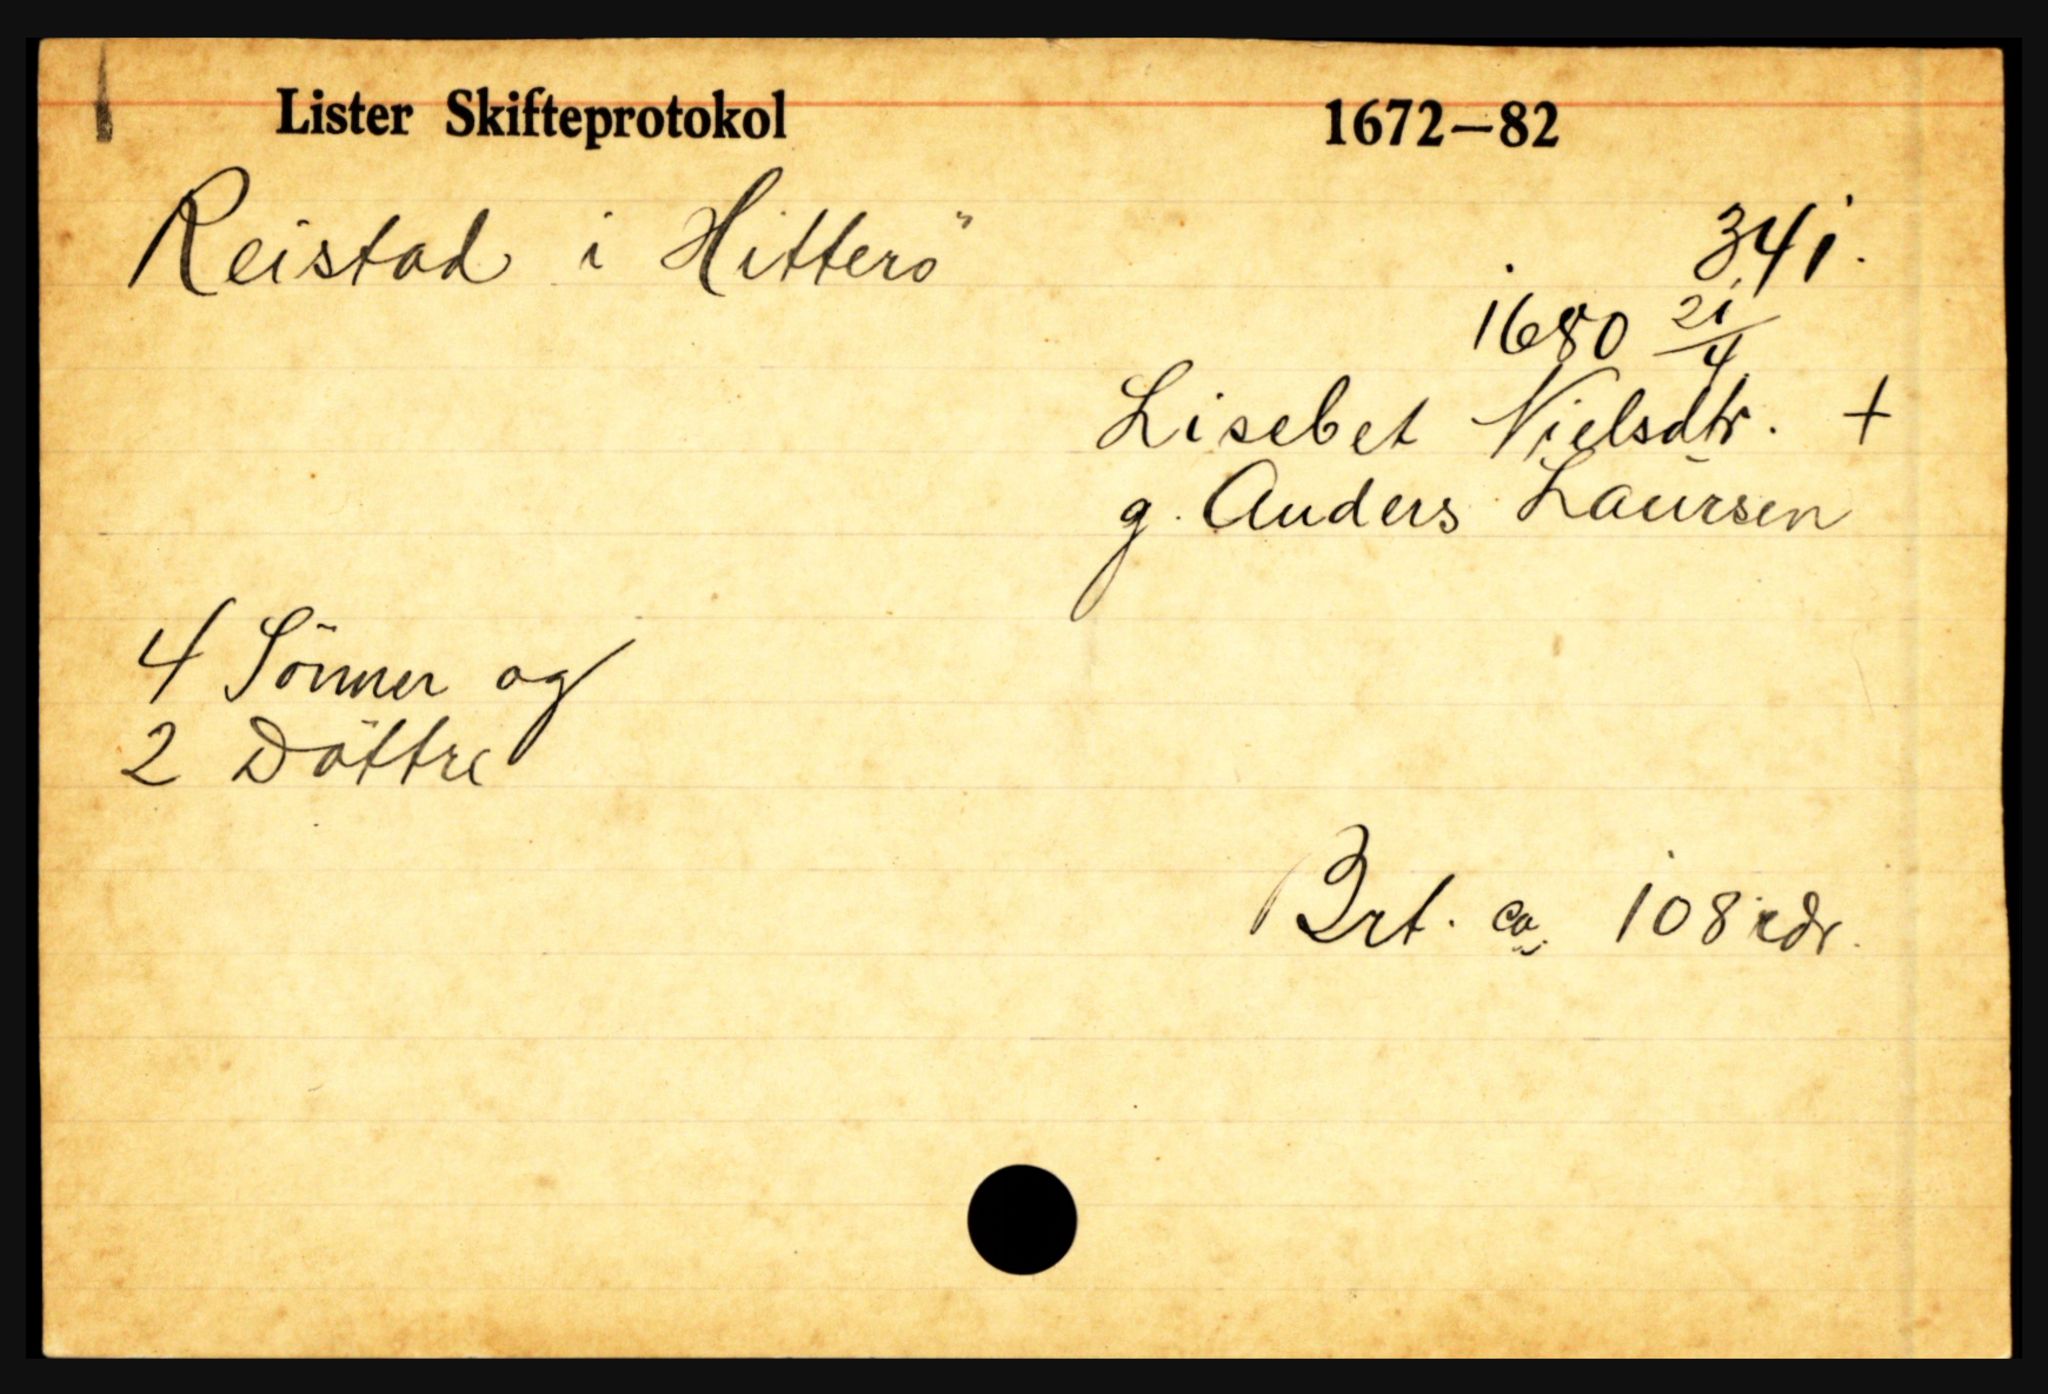 Lister Skifteprotokol 1672–82
Reistad i Hitterö
341.
1680 21/4
Lisebet Nielsdtr. +
g. Anders Laursen
4 Sönner og
2 Döttre
Brt. ca. 108 rdr.